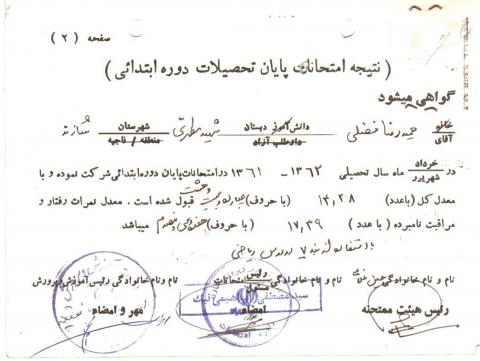 صفحه ( ۲ )
( نتیجه امتحانات پایان تحصیلات دوره ابتدائی )
گواهی میشود
خانم
آقای
حمیدرضا فضلی
دانش‌آموز دبستان
داوطلب آزاد
شهید مطهری
شهرستان
منطقه / ناحیه
شازند
در
خرداد
شهریور
ماه سال تحصیلی ۱۳۶۲ - ۱۳۶۱ در امتحانات پایان دوره ابتدائی شرکت نموده و با
معدل کل (باعدد) ۱۴,۲۸ (با حروف) چهارده و بیست و هشت قبول شده است . معدل نمرات رفتار و
مراقبت نامبرده ( با عدد ) ۱۷,۳۹ (با حروف) هفده و سی و نه صدم میباشد
با استفاده از نمره ۷ در درس ریاضی
نام و نام خانوادگی
رئیس هیئت ممتحنه
نام و نام خانوادگی
رئیس
مسئول
امتحانات
امضاء
سید مصطفی
نام و نام خانوادگی رئیس آموزش و پرورش
مهر و امضاء